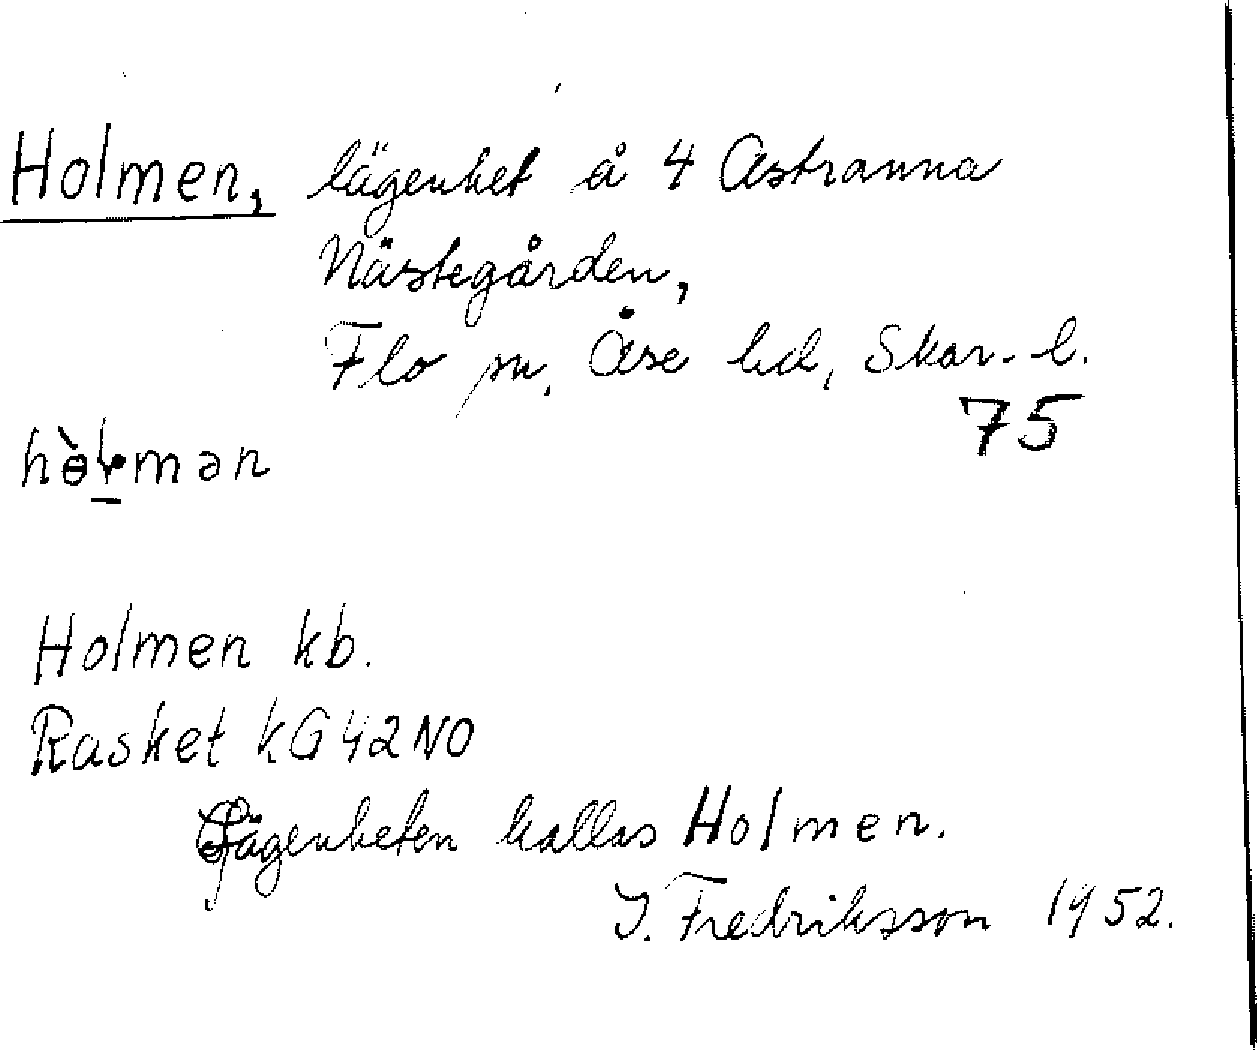 Holmen, lägenhet å 4 Astranna
Nästegården,
Flo sn, Åse hd, Skar. l.
75
hɵ̀ɽmən
Holmen kb.
Rasket kG42NO
Lägenheten kallas Holmen.
I. Fredriksson 1952.